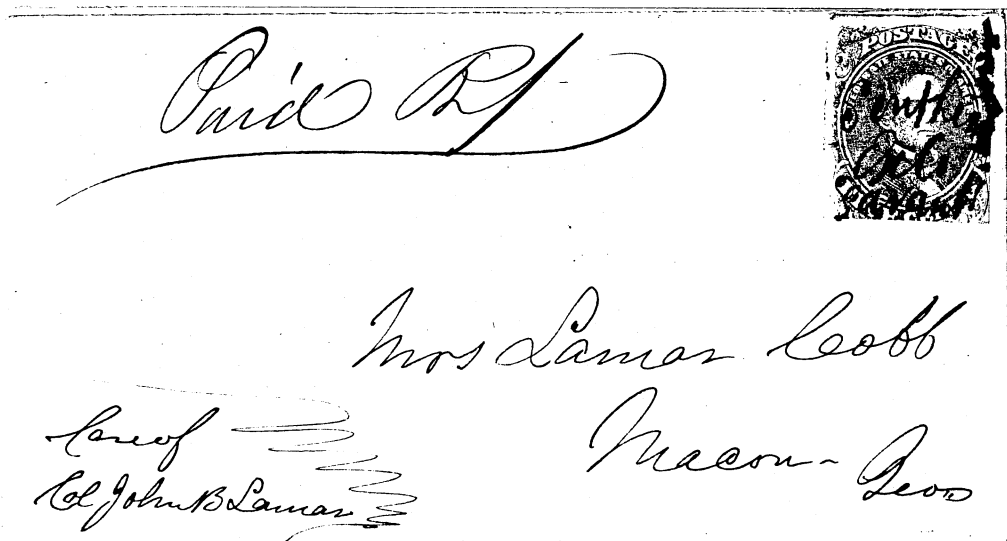 Paid
POSTAGE
Mrs Lamar Cobb
Macon - Geo
Care of
Col John B Lamar